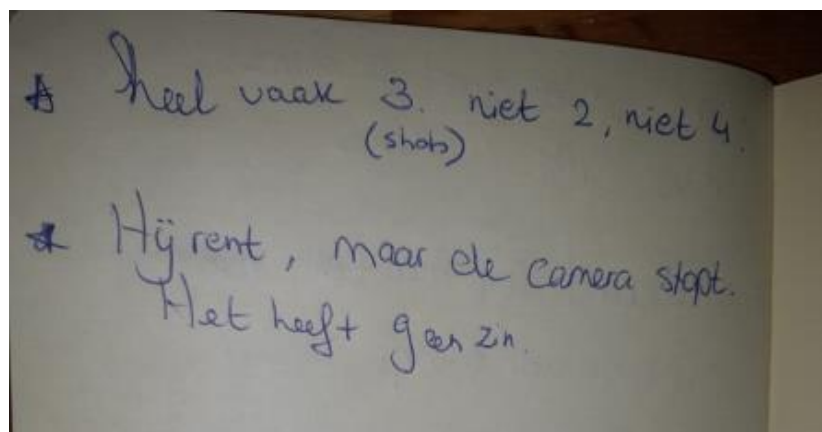 * heel vaak 3. niet 2, niet 4.
(shots)
* Hij rent, maar de camera stopt.
Het heeft geen zin.